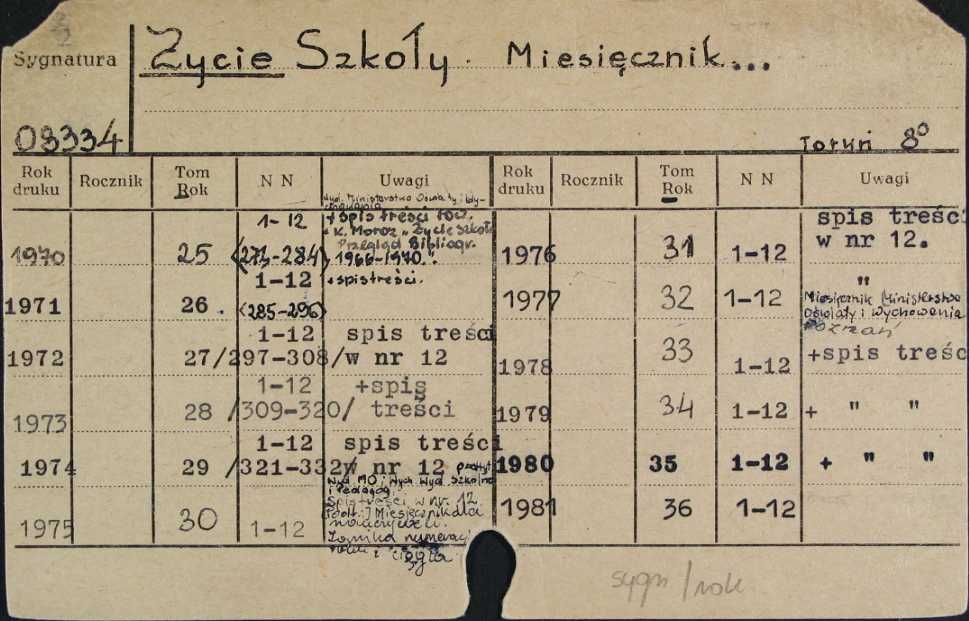 Sygnatura
Życie Szkoły. Miesięcznik...
08334
Toruń 8°
Rok druku Rocznik Tom Rok N N Uwagi
Wyd. Ministerstwo Oświaty i Wy-
chowania
1970 25 1-12 <273-284>
+ spis treści rocz.
+ K. Moroz „Życie Szkoły
Przegląd Bibliogr.
1966-1970".
1971 26. 1-12 <285-296> + spis treści.
1972 27 1-12 /297-308/ spis treści w nr 12
1973 28 1-12 /309-320/ +spis treści
1974 29 1-12 /321-332/ spis treści w nr 12
Wyd. MO i Wych. Wyd. Szkolne
i Pedagog.
1975 30 1-12
Spis treści w nr. 12
Podt.: Miesięcznik dla
nauczycieli.
numeracji
ciągła
Rok druku Rocznik Tom Rok N N Uwagi
1976 31 1-12 spis treści
w nr 12.
1977 32 1-12 "
Miesięcznik Ministerstwa
Oświaty i Wychowania
Poznań
1978 33 1-12 +spis treśc
1979 34 1-12 + " "
1980 35 1-12 + " "
1981 36 1-12
sygn/rok